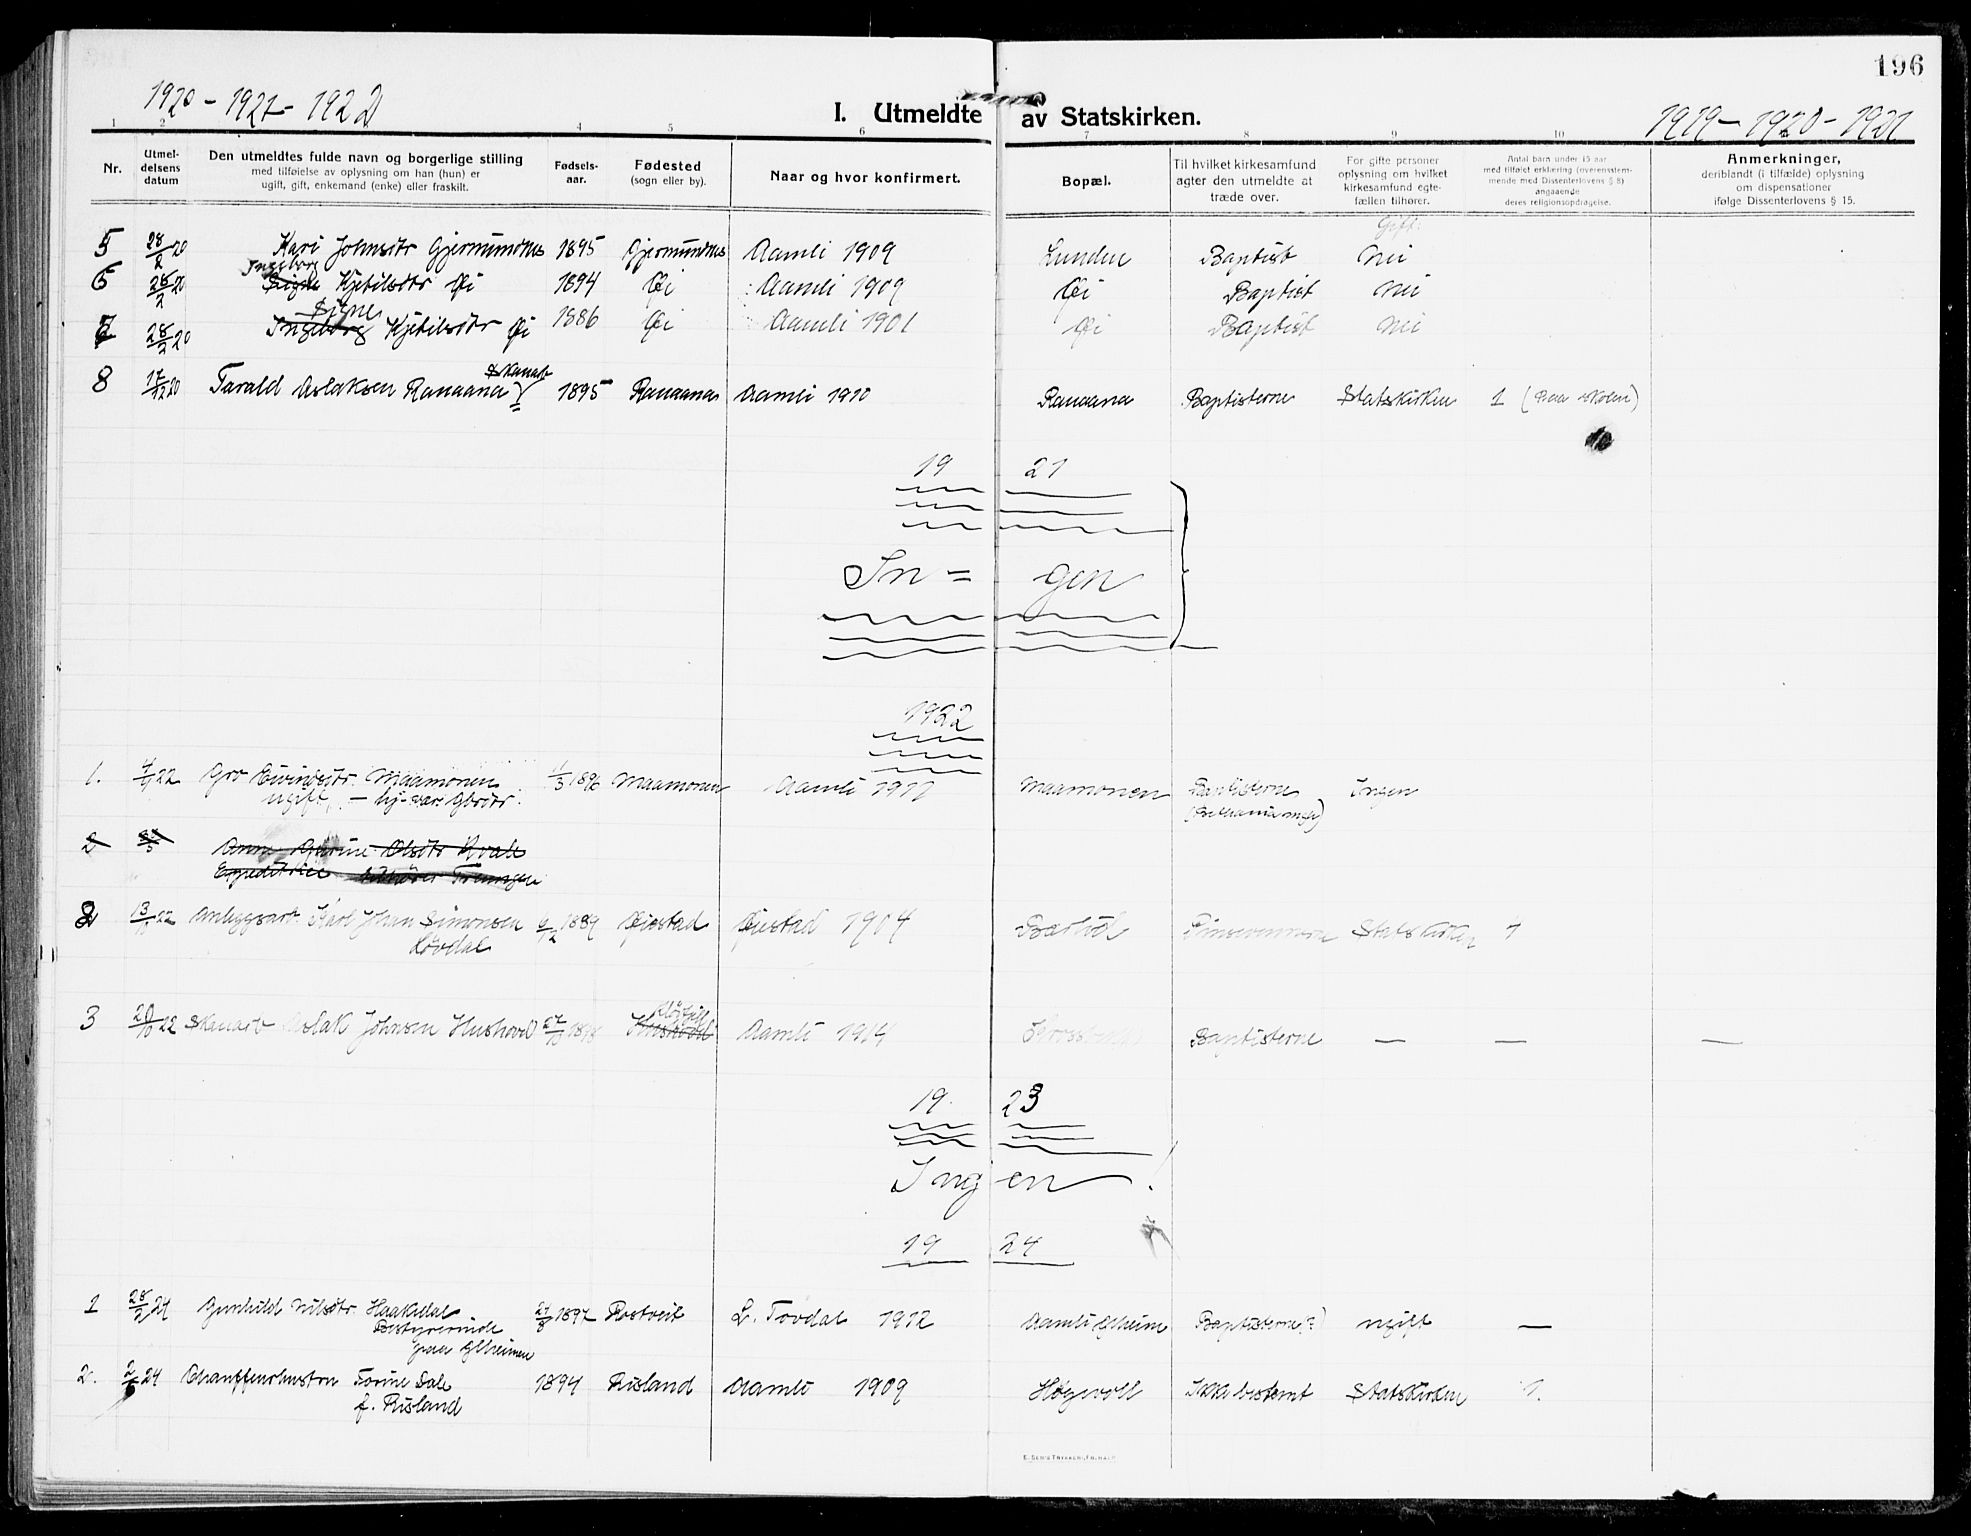 196
1920 - 1921 - 1922
I. Utmeldte av Statskirken.
1919 - 1920 - 1921
1 2 4 5 6 7 8 9 10
Nr.
Utmeldelsens datum
Den utmeldtes fulde navn og borgerlige stilling
med tilføielse av oplysning om han (hun) er
ugift, gift, enkemand (enke) eller fraskilt.
Fødselsaar.
Fødested
(sogn eller by).
Naar og hvor konfirmert.
Bopæl.
Til hvilket kirkesamfund
agter den utmeldte at
træde over.
For gifte personer
oplysning om hvilket
kirkesamfund egtefællen tilhører.
Antal barn under 15 aar
med tilføiet erklæring (overensstemmende med Dissenterlovens § 8)
angaaende
deres religionsopdragelse.
Anmerkninger,
deriblandt (i tilfælde) oplysning
om dispensationer
ifølge Dissenterlovens § 15.
Gift:
5 28/2 20 Kari Johnsdtr Gjermundnes 1895 Gjermundnes Aamli 1909 Lunden Baptist Nei
Ingeborg
6 28/2 20 Signe Kjetilsdtr Øi 1894 Øi Aamli 1909 Øi Baptist Nei
Signe
7 28/2 20 Ingeborg Kjetilsdtr Øi 1886 Øi Aamli 1901 Øi Baptist Nei
Skanarb
8 17/12 20 Tarald Aslaksen Ranaana 1895 Ranaana Aamli 1910 Ranaana Baptisterne Statskirken 1
19 21
In = gen
1922
1. 4/1 22 Gro Eivindsdtr. Maamonen 11/3 1896 Maamonen Aamli 1911 Maamonen Baptisterne Ingen
ugift, -
2 Anne Olsdtr Kvale
Expeditrice
2 13/10 22 Anleggsarb. Karl Johan Simonsen 6/2 1889 Øiestad Øiestad 1904 Statskirken 1
Løvdal
3 20/10 22 Skanarb Aslak Johnsen Hushovd 27/10 1898 Hushovd Aamli 1914 Baptisterne — — —
19 23
Ingen!
19 24
1 28/2 24 Gunhild Nilsdtr. Haakedal 24/8 1897 Rostveit L. Tovdal 1912 Aamli Baptisterne(?) ugift —
Bestyrerinde
paa
2. 24 Chauffeurhustru Torine Dale 1894 Risland Aamli 1909 Høgevoll Ikke bestemt Statskirken 1.
f. Risland